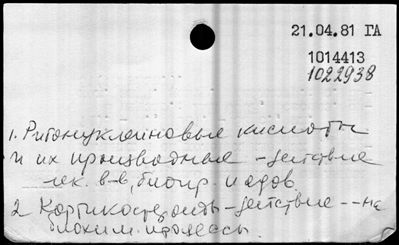 21.04.81 ГА
1014413
1022938
1. Рибонуклеиновые кислоты
и их производные - действие
лек. в-в, биопр. и ядов
2. Кортикостероиды - действие -- на
биохим. процессы.